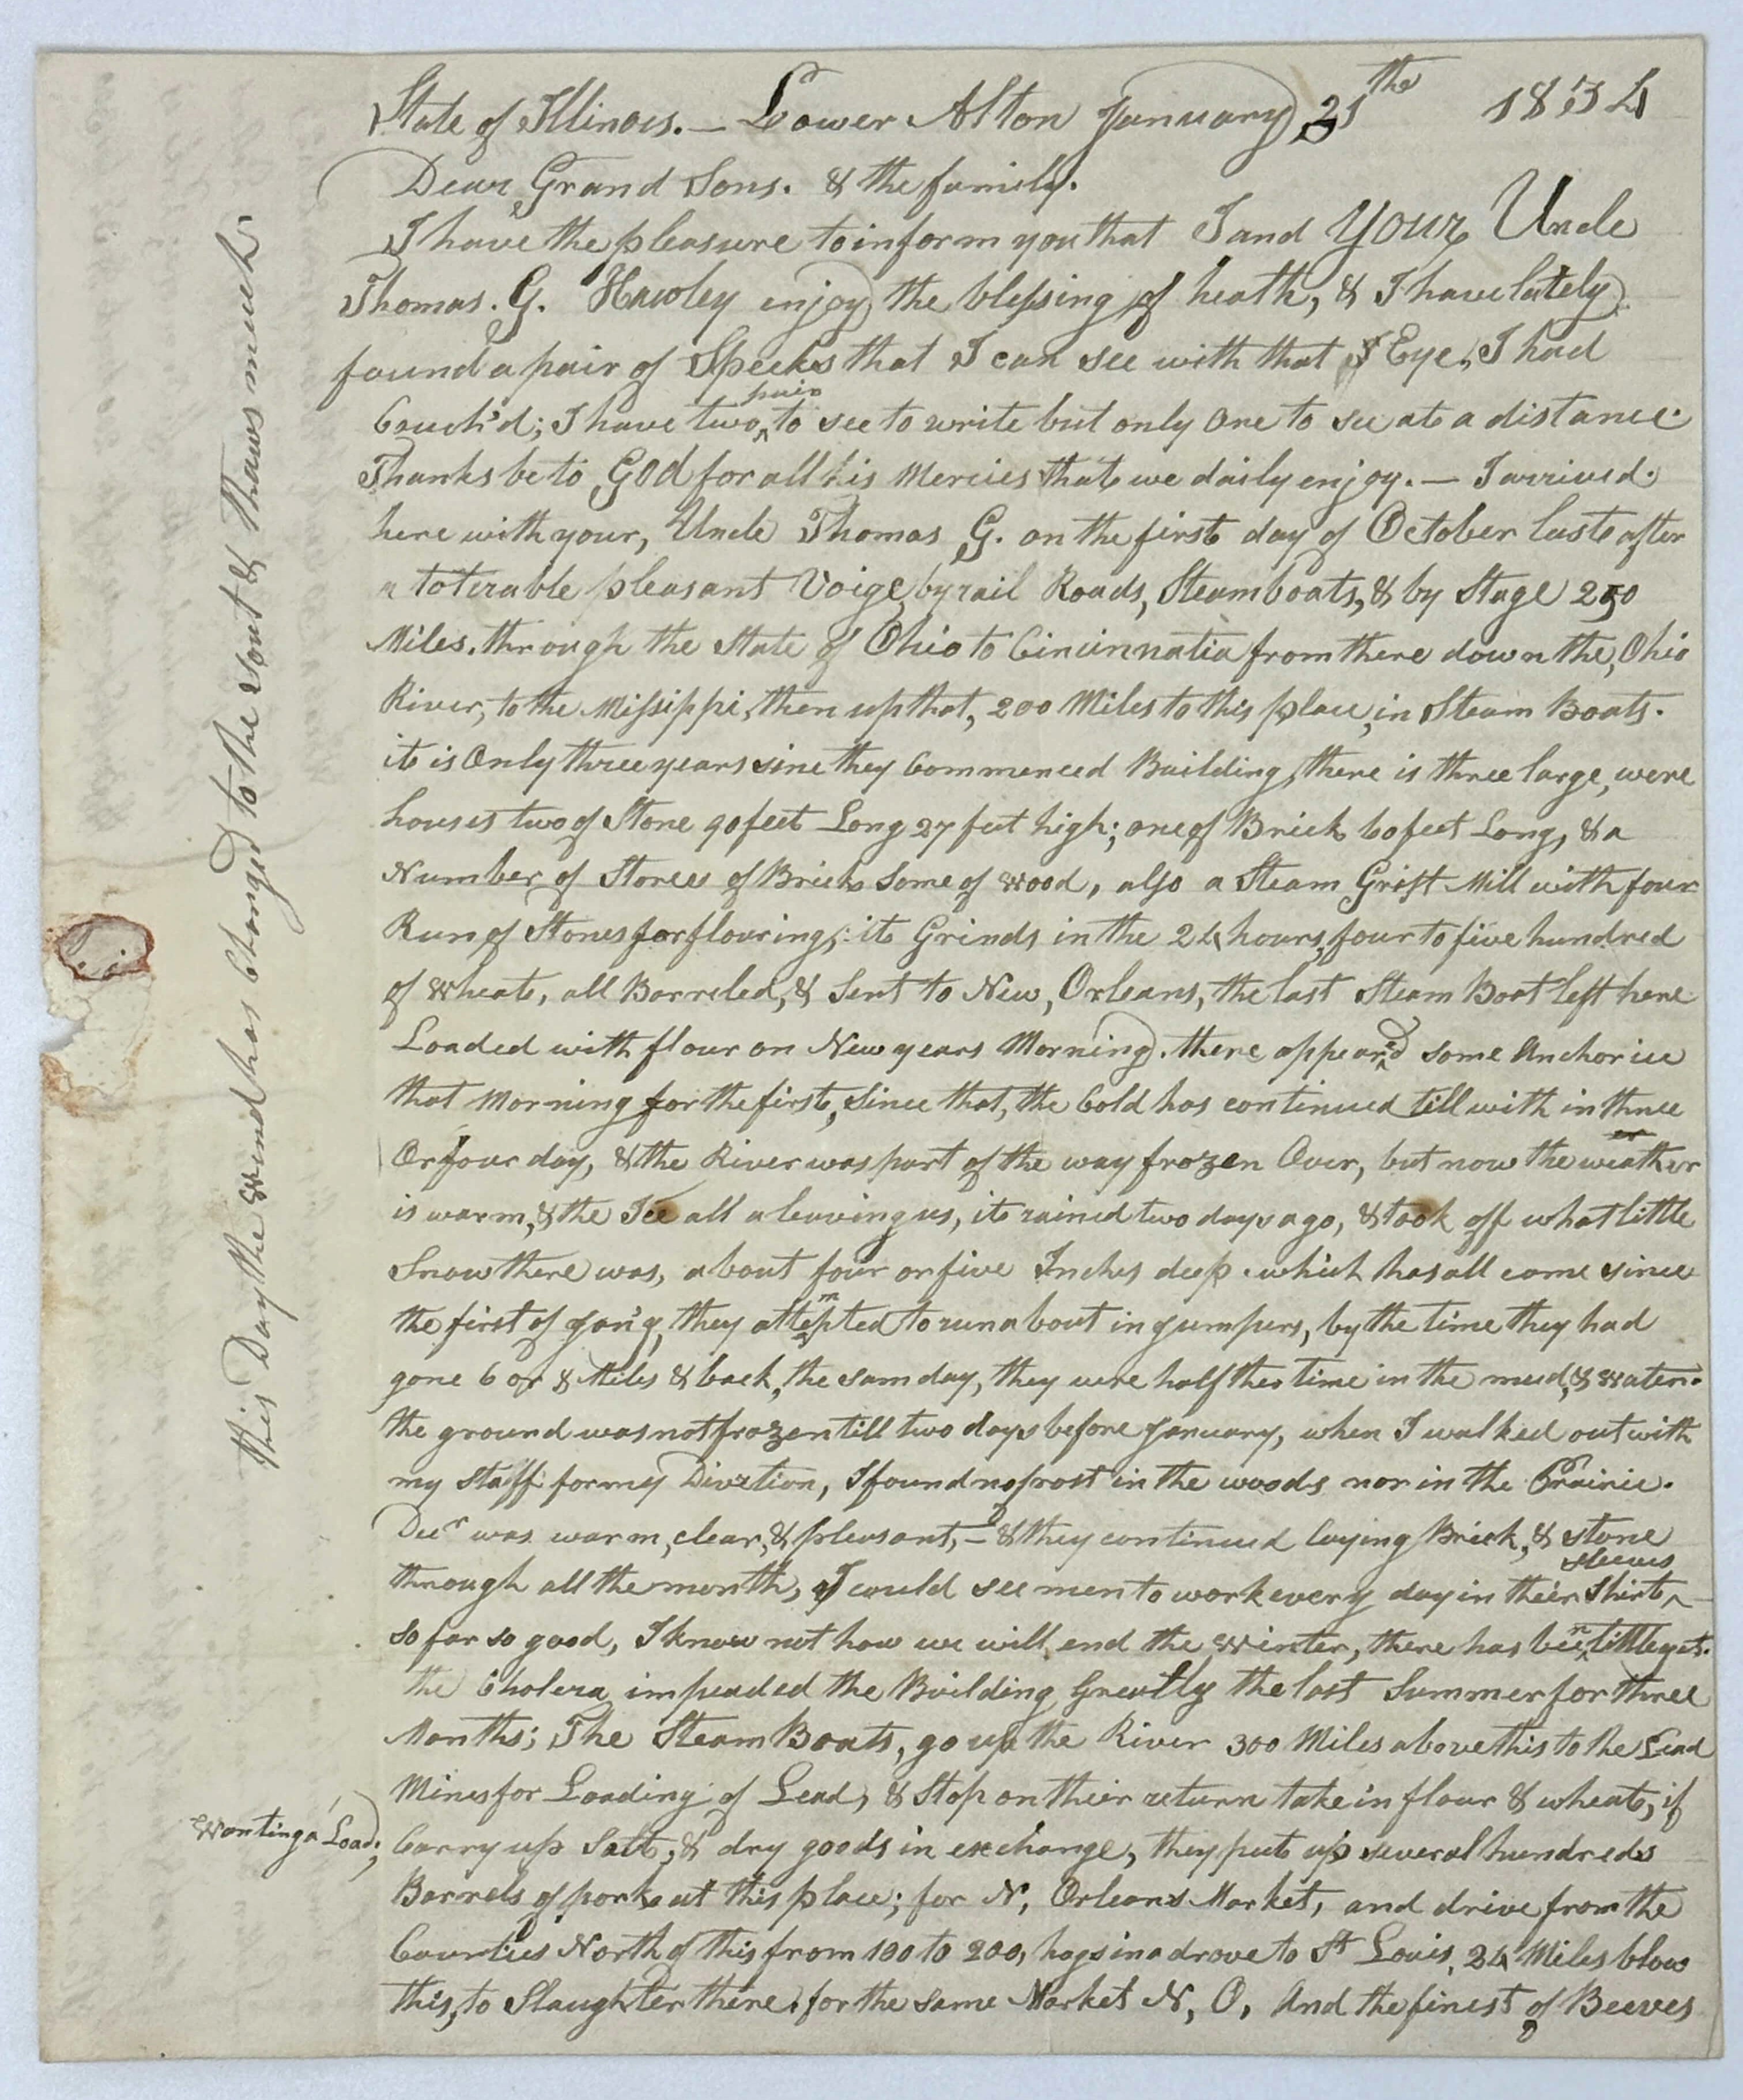 State of Illinois. — Lower Alton January 21th 1834
Dear Grand Sons. & the family.
I have the pleasure to inform you that I and Your Uncle
Thomas. G. Hawley enjoy the blessing of heath, & I have lately
found a pair of Specks that I can see with that Eye, I had
Couch'd; I have two pair to see to write but only One to see at a distance.
Thanks be to God for all his Mercies that we daily enjoy. — I arrived.
here with your, Uncle Thomas G. on the first day of October last after
a tolerable pleasant Voige, by rail Roads, Steamboats, & by Stage 250
Miles, through the State of Ohio to Cincinnatia from there down the, Ohio
River, to the Missippi, then up that, 200 Miles to this place, in Steam Boats.
it is Only three years sine they Commenced Building, there is three large, were
houses two of Stone 90 feet Long 27 feet high; one of Brick 60 feet Long, & a
Number of Stores of Brick Some of Wood, also a Steam Grist Mill with four
Run of Stones for flouring; it Grinds in the 24 hours, four to five hundred
of Wheat, all Barreled, & Sent to New, Orleans, the last Steam Boat left here
Loaded with flour on New years Morning. there appear'd some Anchor ice
that Morning for the first, Since that, the Cold has continued till with in three
Or four day, & the River was part of the way frozen Over, but now the weather
is warm, & the Ice all a leaving us, it rained two days ago, & took off what little
Snow there was, about four or five Inches deep. which has all come since
the first of Jan'y, they attempted to run about in jumpers, by the time they had
gone 6 or 8 Miles & back, the sam day, they were half the time in the mud, & Water.
the ground was not frozen till two days before January, when I walked out with
my Staff for my Divetion, I found no frost in the woods nor in the Prairie.
Decr was warm, clear, & pleasant, — & they continued laying Brick, & stone
through all the month, I could see men to work every day in their Shirt sleeves
so far so good, I know not how we will end the Winter, there has been little yet.
the Cholera impeaded the Building Greatly the last Summer for three
Months; The Steam Boats, go up the River 300 Miles above this to the Lead
Mines for Loading of Lead, & Stop on their return take in flour & wheat, if
Wanting a Load, Carry up Salt, & dry goods in exchange, they put up several hundreds
Barrels of pork at this place; for N, Orleans Market, and drive from the
Counties North of this from 100 to 200, hogs in a drove to St Louis, 24 Miles blow
this, to Slaughter there, for the same Market N, O, And the finest of Beeves
This Day the Wind has Changed to the Sout & Thaws much.